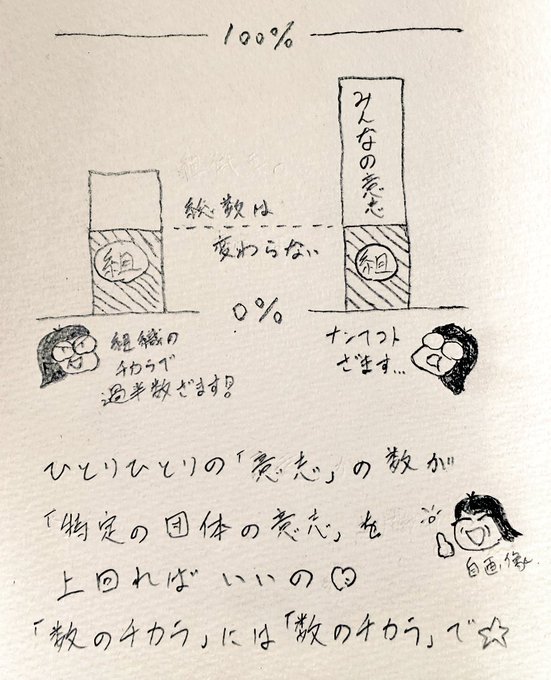 100%
みんなの意志
総数は
変わらない
組
組
0%
組織の
チカラで
過半数ざます!
ナンテコト
ざます…
ひとりひとりの「意志」の数が
「特定の団体の意志」を
上回ればいいの♡
自画像
「数のチカラ」には「数のチカラ」で☆